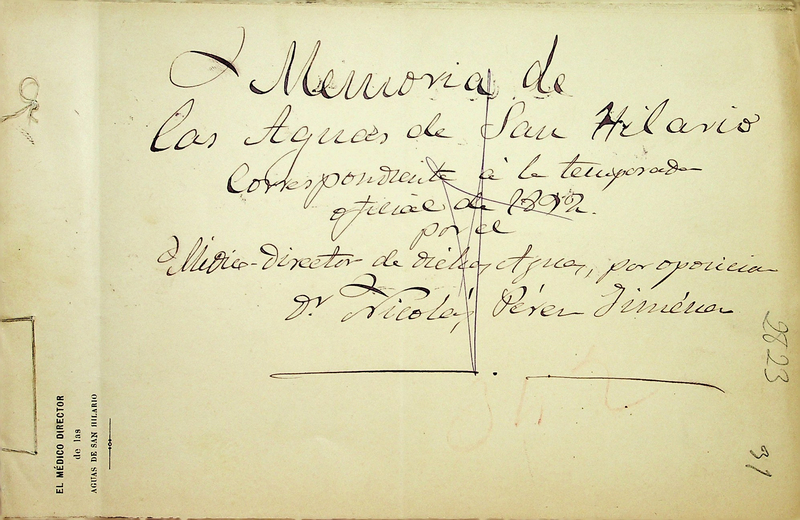 Memoria de
las Aguas de San Hilario
Correspondiente á la temporada
oficial de 1892.
por el
Médico-Director de dichas Aguas, por oposicion
Dr Nicolás Pérez Jiménez
2823
31
EL MÉDICO DIRECTOR
de las
AGUAS DE SAN HILARIO